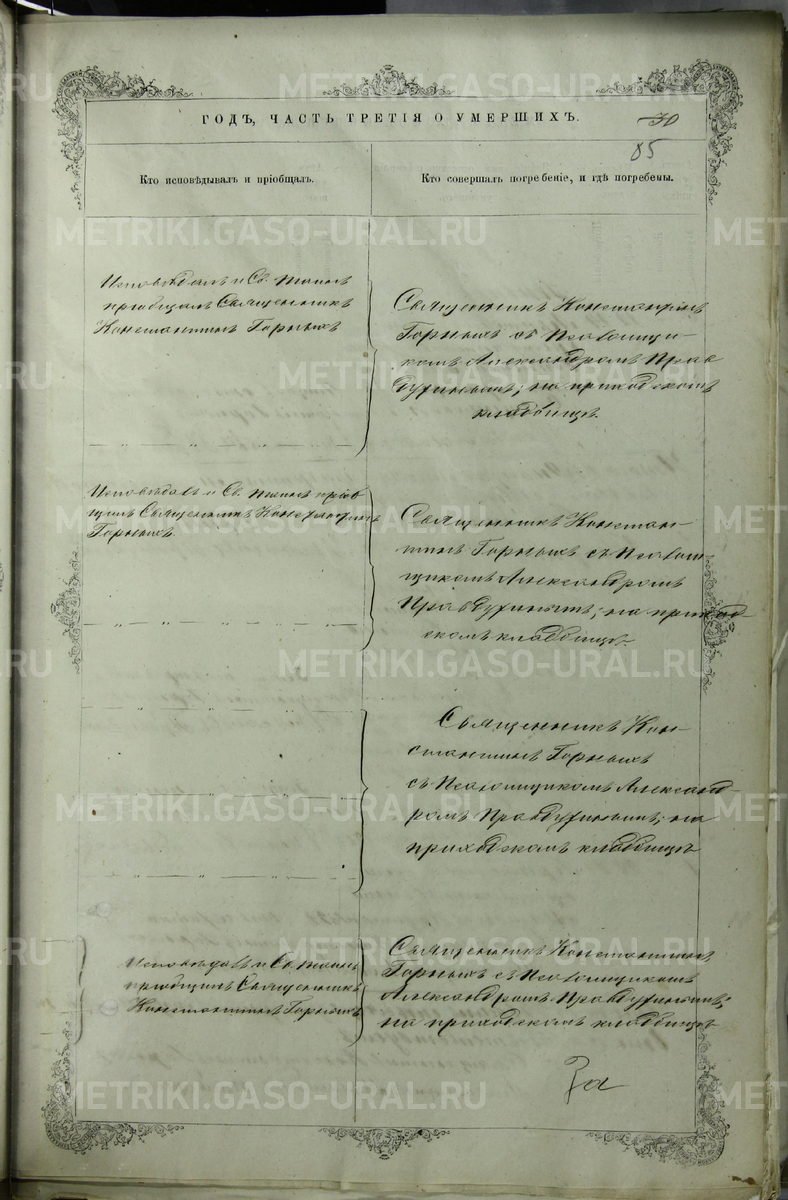 ГОДЪ, ЧАСТЬ ТРЕТІЯ О УМЕРШИХЪ.
30
85
Кто исповѣдывалъ и пріобщалъ.
Кто совершалъ погребеніе, и гдѣ погребены.
Исповѣдалъ и Св. таинъ
пріобщалъ Священникъ
Константинъ Горныхъ
Священникъ Константинъ
Горныхъ съ Псаломщи-
комъ Александромъ Прав
духинымъ; на приходскомъ
кладбищѣ.
Исповѣдалъ и Св. таинъ пріоб
щилъ Священникъ Константинъ
Горныхъ
Священникъ Констан-
тинъ Горныхъ съ Псалом-
щикомъ Александромъ
Правдухинымъ; на приход
скомъ кладбищѣ.
Священникъ Кон-
стантинъ Горныхъ
съ Псаломщикомъ Александ-
ромъ Правдухинымъ; на
приходскомъ кладбищѣ
Исповѣдалъ и Св. таинъ
пріобщилъ Священникъ
Константинъ Горныхъ
Священникъ Константинъ
Горныхъ съ Псаломщикомъ
Александромъ Правдухинымъ;
на приходскомъ кладбищѣ
За
METRIKI.GASO-URAL.RU